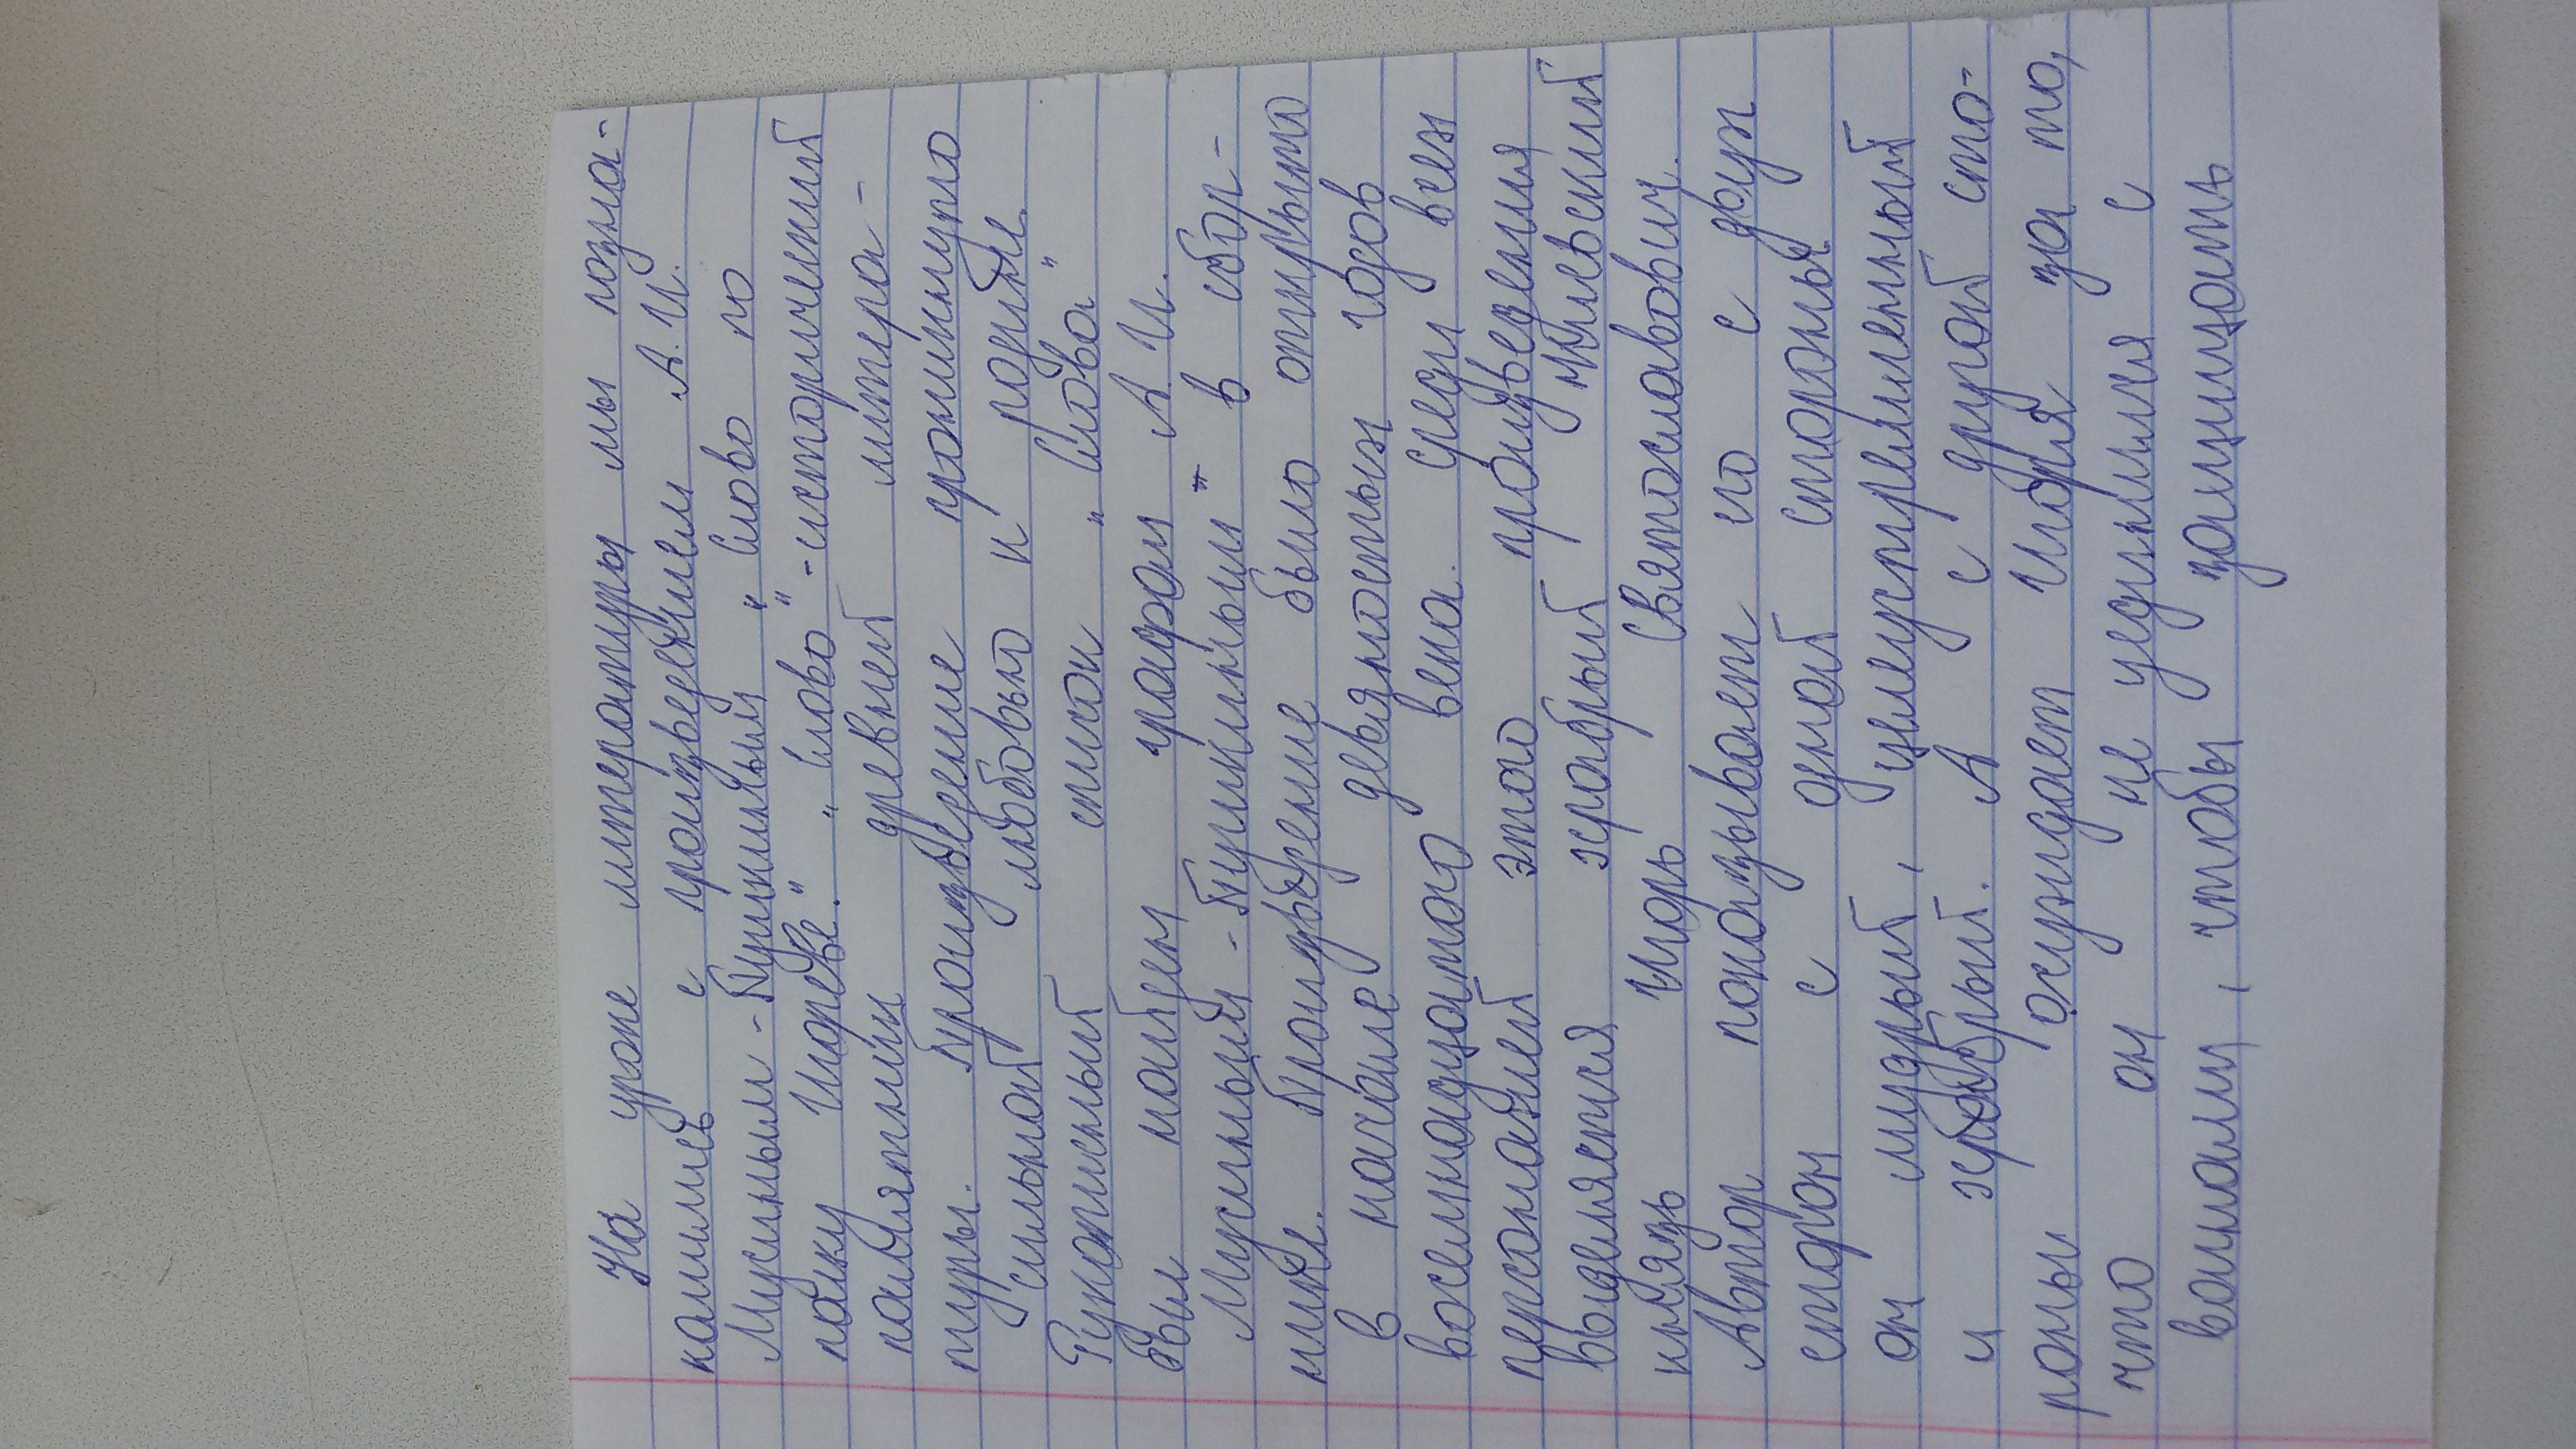 На уроке литературы мы позна-
комились с произведением А.И.
Мусиным-Пушкиным „Слово по
полку Игореве." „Слово"-исторический
памятник древней литера-
туры. Произведение проникнуто
сильной любовью к родине.
Рукописный список „Слова"
был найден графом А.И.
Мусиным-Пушкиным в сбор-
нике. Произведение было открыто
в начале девяностых годов
восемнадцатого века. Среди всех
персонажей этого произведения
выделяется храбрый киевский
князь Игорь Святославович.
Автор показывает его с двух
сторон с одной стороны
он мудрый, целеустремленный
и храбрый. А с другой сто-
роны осуждает Игоря за то,
что он не уединился с
вами, чтобы защищать